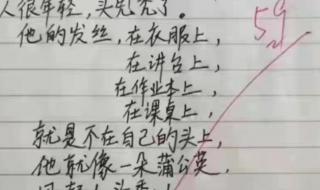 人很年轻，头先秃了。
59
他的发丝，在衣服上，
在讲台上，
在作业本上，
在课桌上，
就是不在自己的头上，
他就像一朵蒲公英，